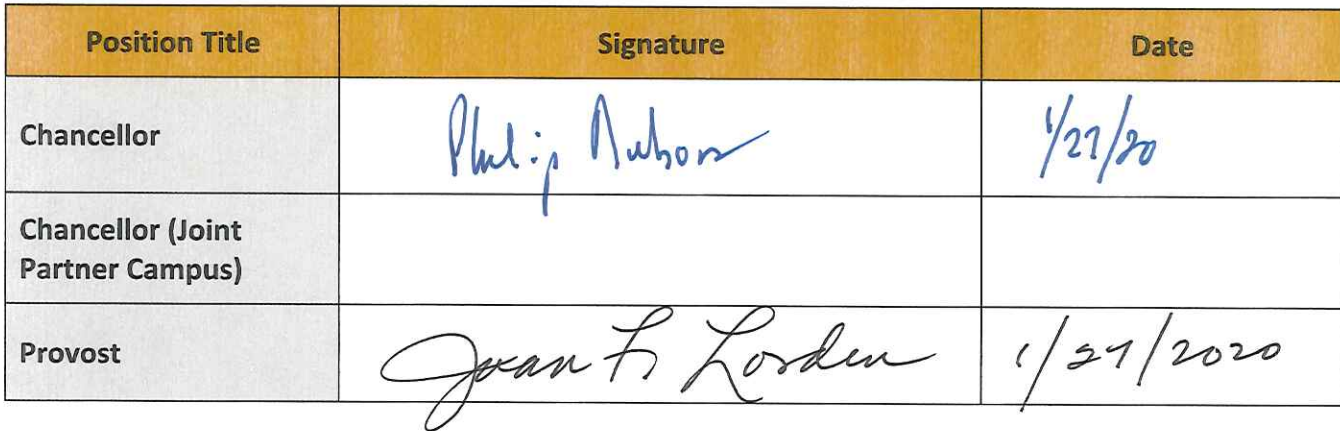 Position Title Signature Date
Chancellor Philip 1/27/20
Chancellor (Joint
Partner Campus)
Provost Joan F. Lorden 1/27/2020